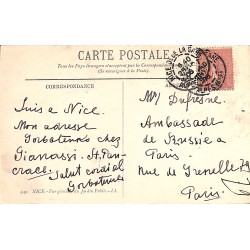 CARTE POSTALE
Tous les Pays étrangers n'acceptent pas la Correspondance
(Se renseigner à la Poste)
CORRESPONDANCE
Suis a Nice.
Mon adresse
Gorbatenko chez
Gianassi. St. Pan-
crace. Salut cordial
Gorbatenko
NICE - Vue générale du Jardin Public - LL.
Mr Dufresne.
Ambassade
de Russie a
Paris
Rue de Grenelle 79
Paris.